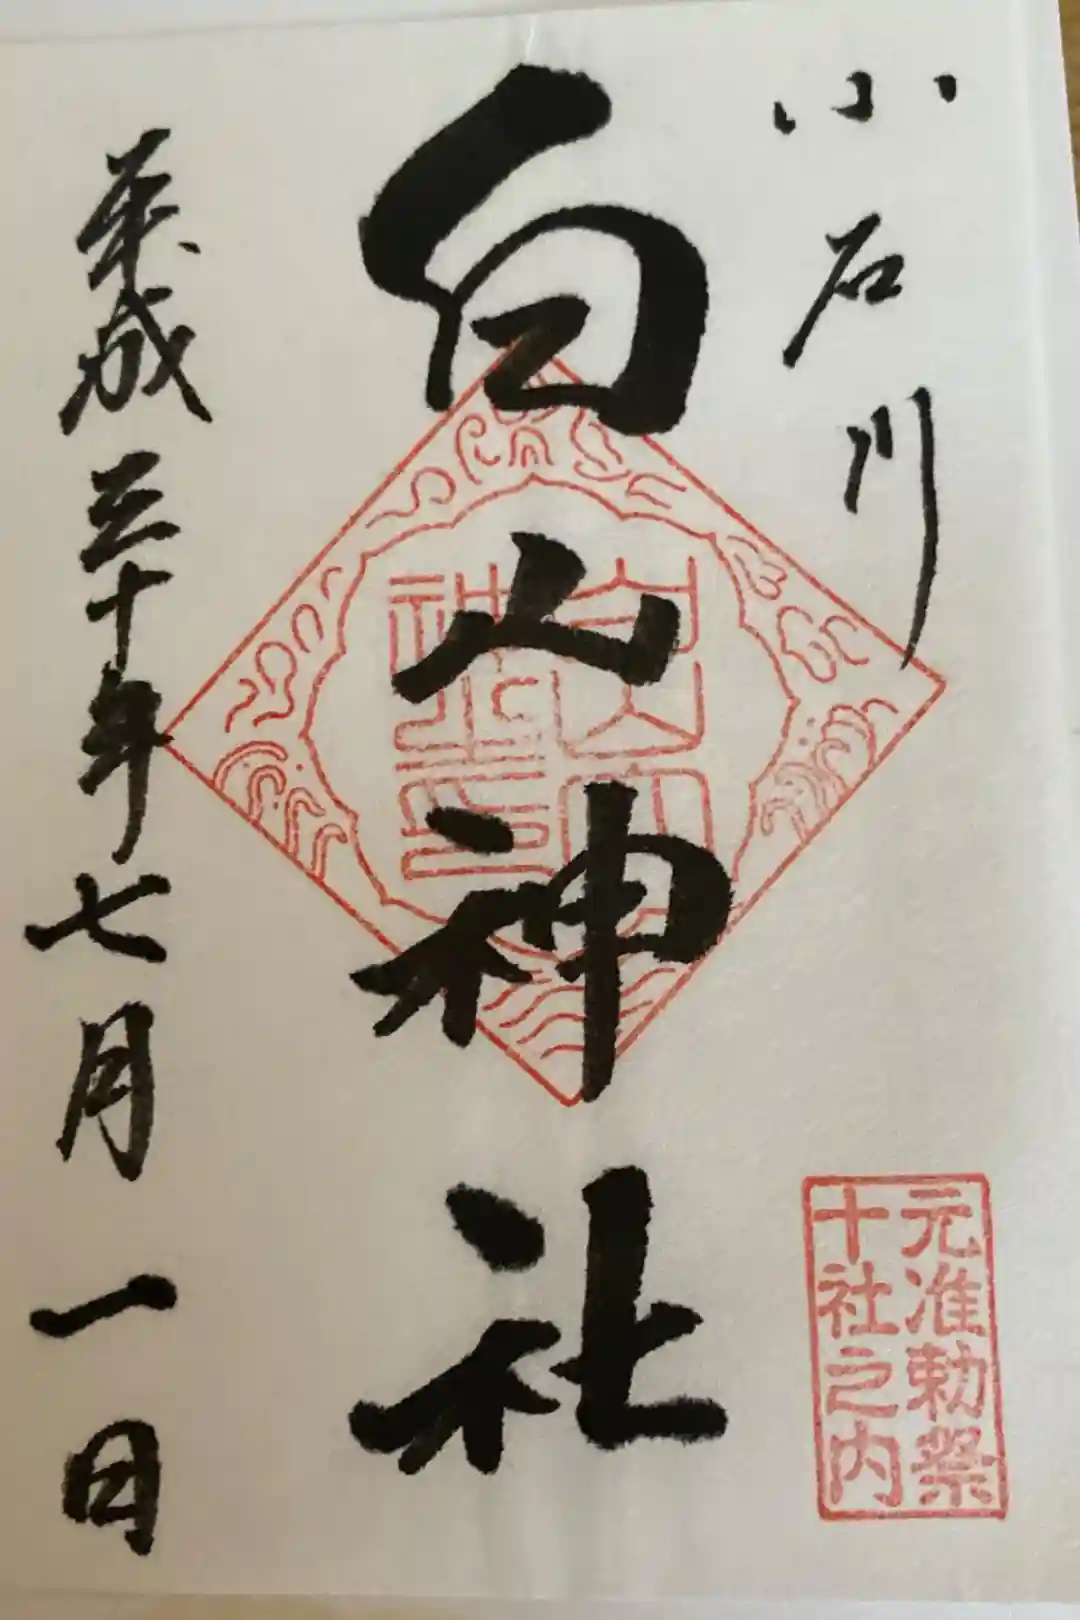 小石川
白山神社
平成三十年七月一日
元准勅祭
十社之内